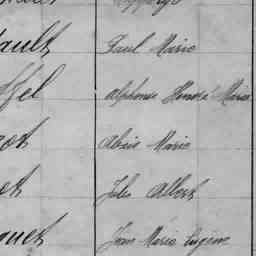 ault Paul Marie
ffel Alphonse Honoré Marie
rot Alexis Marie
et Jules Albert
quet Jean Marie Eugène